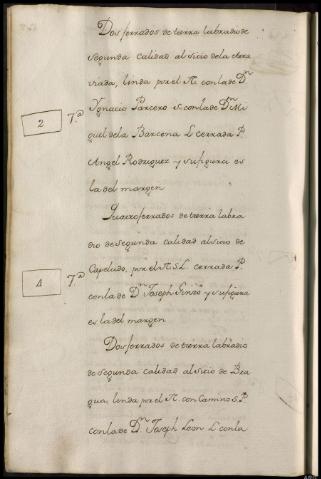 Dos ferrados de tierra labradio de
segunda calidad al sitio de la
linda por el N. con la de Dn
2 7.a Ygnacio Parcero S. con la de Dn Mi
guel de la Barcena L. cerrada P.
Angel Rodriguez y su figura es
la del margen
Quatro ferrados de tierra labra
dio de segunda calidad al sitio de
4 7.a por el N. S. L. cerrada P.
con la de Dn Joseph y su figura
es la del margen
Dos ferrados de tierra labradio
de segunda calidad al sitio de Bea
gua, linda por el N. con Camino S. P.
con la de Dn Joseph Leon L. con la